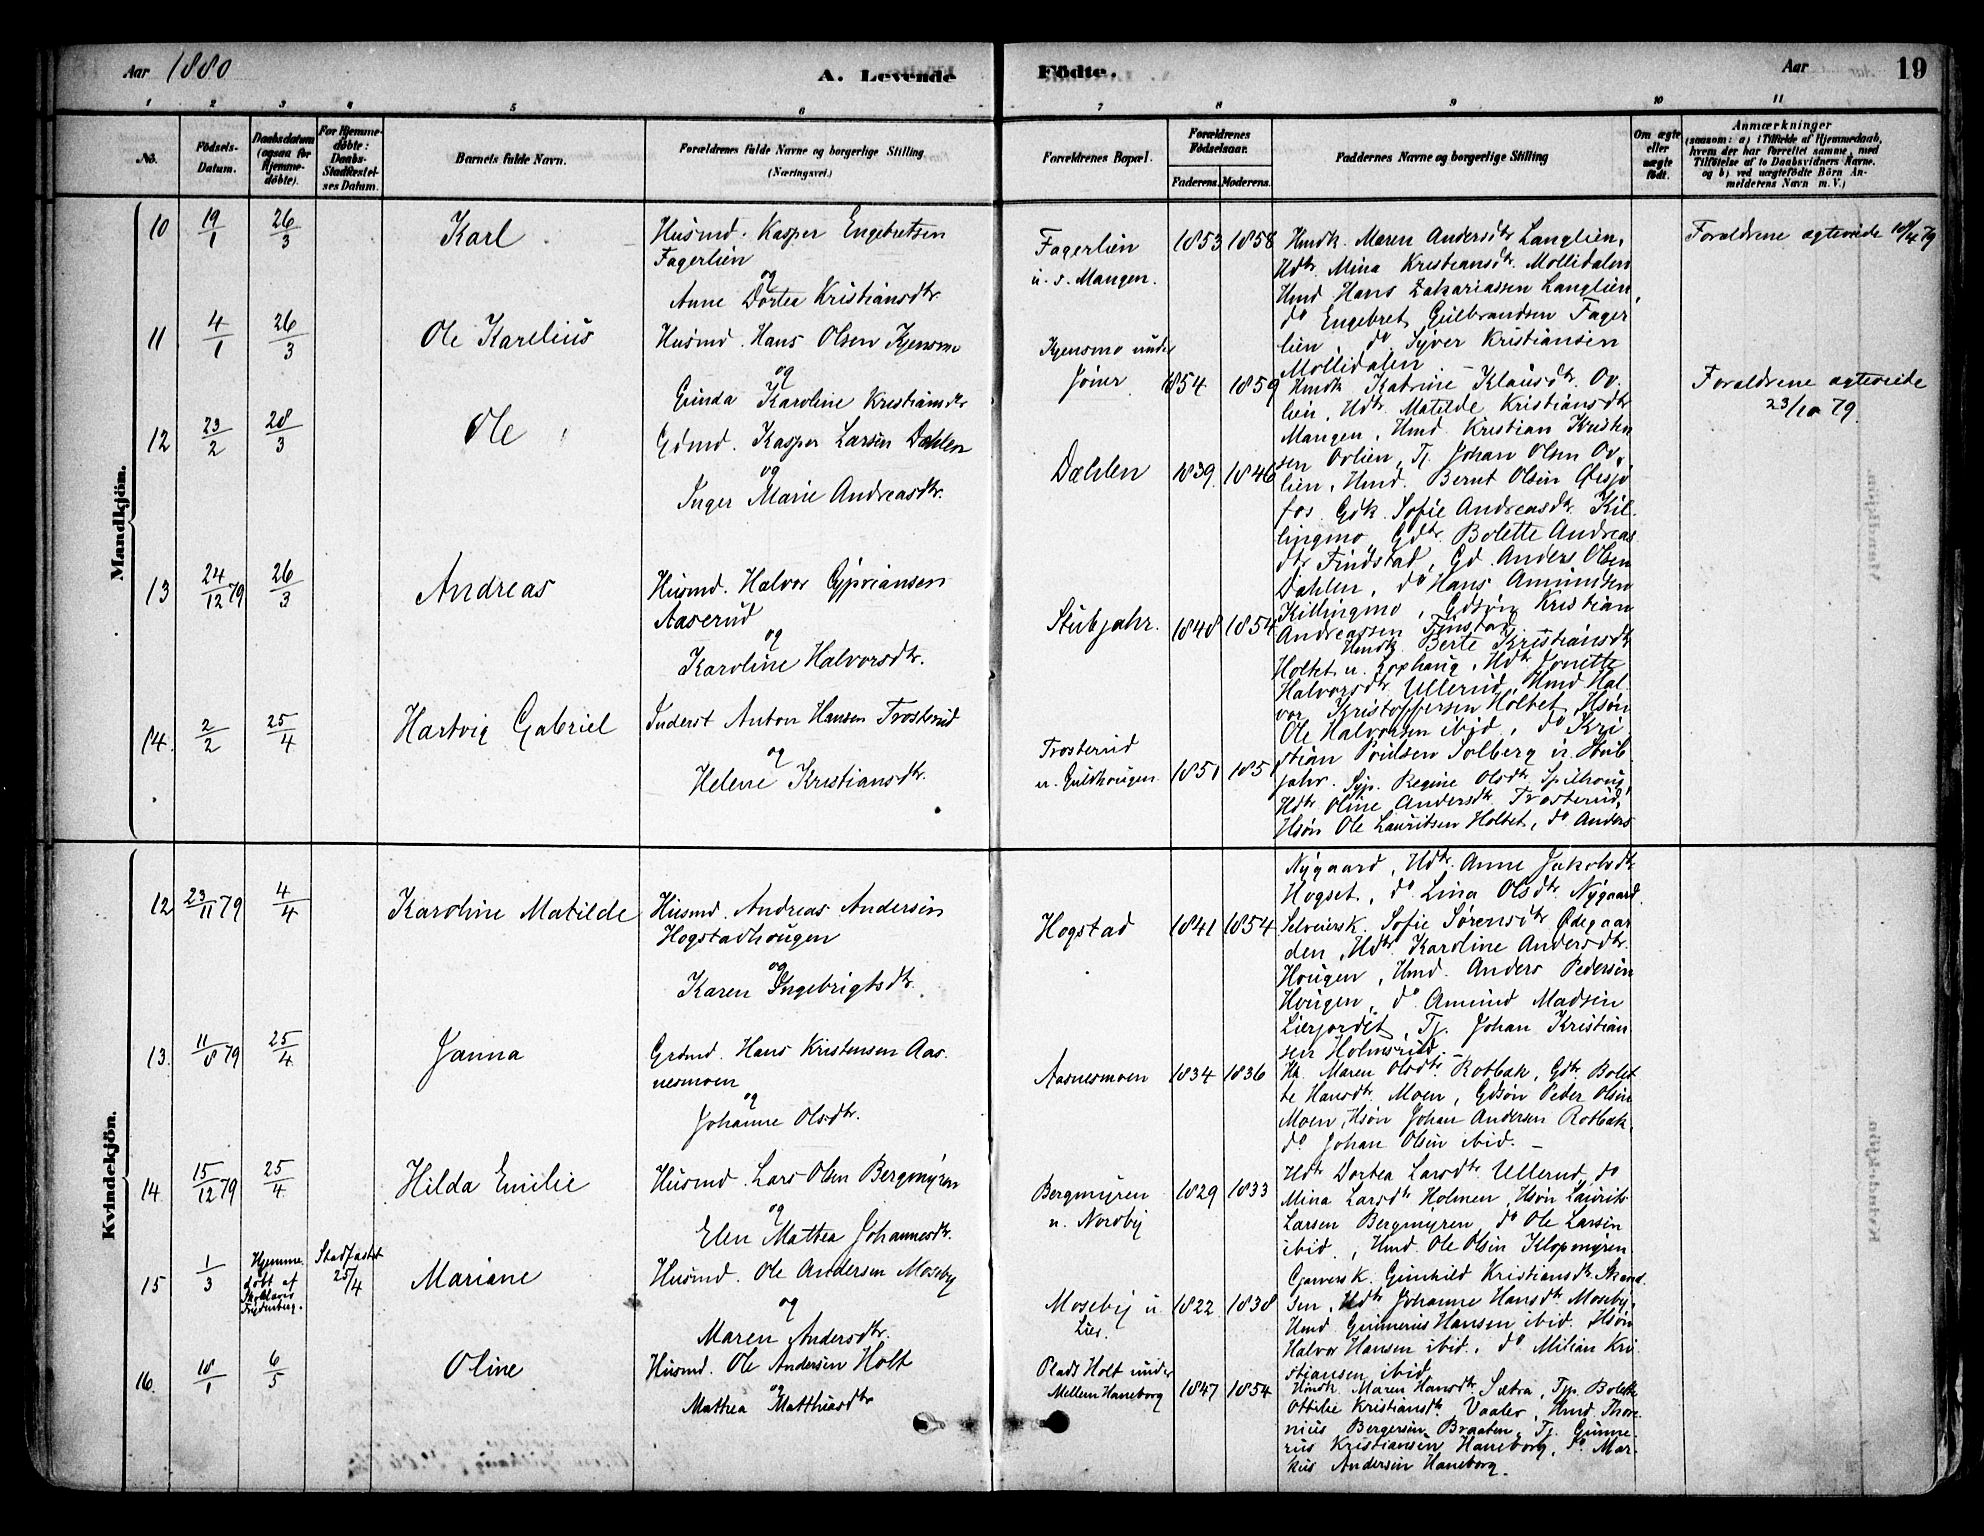 Aar 1880
A. Levende Födte.
Aar
19
1 2 3 4 5 6 7 8 9 10 11
No.
Födsels-Datum.
Daabsdatum (ogsaa for Hjemmedöbte).
For Hjemmedöbte: Daabs-Stadfæstelses Datum.
Barnets fulde Navn.
Forældrenes fulde Navne og borgerlige Stilling (Næringsvei.)
Forældrenes Bopæl.
Forældrenes Födselsaar.
Faderens. Moderens.
Faddernes Navne og borgerlige Stilling
Om ægte eller uægte födt.
Anmærkninger
(saasom: a) i Tilfælde af Hjemmedaab, hvem der har forrettet samme, med Tilföielse af to Daabsvidners Navne. og b) ved uægtefödte Börn Anmelderens Navn m. V.)
Mandkjön.
10 19/1 26/3 Karl
Husmd. Kasper Engebretsen
Fagerlien
og
Anne Dortea Kristiansdtr.
Fagerlien
u. s. Mangen.
1853 1858
Hmdk. Maren Andersdtr Langlien,
Hdtr Mina Kristiansdtr. Mollidalen
Hmd Hans Zakariassen Langlien,
do Engebret Gulbrandsen Fager
lien, do Syver Kristiansen
Mollidalen. –
Foraldrene ægteviede 10/4 79
11 4/1 26/3 Ole Karelius
Husmd. Hans Olsen Kjensmo
og
Gunda Karoline Kristiansdtr
Kjensmo under
Joner
1854 1859
Hmdk Katrine Klausdtr. Ov.
lien, Hdtr. Matilde Kristiansdtr
Mangen, Hmd. Kristian Kristen
sen Ovlien, Tj. Johan Olsen Ov.
lien, Hmd. Bernt Olsen
Foraldrene ægteviede
23/10 79.
12 23/2 28/3 Ole
Gdmd. Kasper Larsen Dæhlen
og
Inger Marie Andreasdtr.
Dæhlen
1839. 1846
fos Gdk. Sofie Andreasdtr. Kil.
lingmo, Gdtr. Bolette Andreas
dtr Findstad, Gd. Anders Olsen
Dahlen, do Hans Amundsen
Killingmo, Gdsøn Kristian
Andreassen Finstad
13 24/12 79 26/3 Andreas
Husmd. Halvor Cypriansen
Aaserud
og
Karoline Halvorsdtr.
Stubjahr.
1848 1854
Hmdk. Berte Kristiansdtr
Holtet u. Lophaug, Hdtr.
Halvorsdtr. Ullerud, Hmd Hal.
vor Kristoffersen Holtet, Hsøn
Ole Halvorsen ibid, do Kri
stian Poulsen Solberg u. Stub.
jahr.
14. 2/2 25/4 Hartvig Gabriel
Inderst Anton Hansen Trosterud
og
Helene Kristiansdtr.
Trosterud
u. Guldhougen
1851 1851
Syp. Regine Olsdtr. Spilhoug,
Hdtr Oline Andersdtr. Trosterud,
Hsøn Ole Lauritsen Holtet, do Anders
Kvindekjön.
Nygaard, Hdtr. Anne Jakobsdtr
Hogset, do Lina Olsdtr. Nygaard.
12 23/11 79 4/4 Karoline Matilde
Husmd. Andreas Andersen
Hogstadhougen
og
Karen Ingebrigtsdtr.
Hogstad
1841 1854
Selveiersk. Sofie Sørensdtr Ødegaar
den, Hdtr Karoline Andersdtr.
Hougen, Hmd. Anders Pedersen
Hougen, do. Amund Madsen
Lierjordet, Tj. Johan Kristian
sen Holmsrud. –
13. 11/8 79 25/4 Janna
Grdmd. Hans Kristensen Aas.
nesmoen
og
Johanne Olsdtr.
Aasnesmoen
1834 1836
Hk. Maren Olsdtr. Rotbæk, Gdtr. Bolet
te Hansdtr. Moen, Gdsøn Peder Olsen
Moen, Hsøn Johan Andersen Rotbæk.
do Johan Olsen ibid. –
14. 15/12 79 25/4 Hilda Emilie
Husmd. Lars Olsen Bergmyren
og
Elen Mathea Johannesdtr.
Bergmyren
u. Nordby
1829 1833
Hdtr Dortea Larsdtr. Ullerud, do
Mina Larsdtr Holmen, Hsøn Laurits
Larsen Bergmyren, do Ole Larsen
ibid., Hmd. Ole Olsen Klopmyren
15 1/3
Hjemme.
døbt af
Skolelærer
Frydenberg.
Stadfæstet
25/4
Mariane
Husmd. Ole Andersen Moseby
og
Maren Andersdtr.
Moseby u.
Lier.
1822 1838
Garversk. Gunhild Kristiansdtr. Strand
sen, Hdtr Johanne Hansdtr. Moseby,
Hmd. Gunnerus Hansen ibid. Hsøn
Halvor Hansen ibid. do Milian Kri
stiansen ibid
16. 18/1 6/5 Oline
Husmd. Ole Andersen Holt
og
Mathea Matthiasdtr
Plads Holt under
Mellem Haneborg
1847 1854
Hmdk. Maren Hansdtr. Sætra, Typ. Bolette
Ottilie Kristiansdtr. Vaaler, Hmd. Thore
nius Bergersen Braaten, Tj. Gunne.
rus Kristiansen Haneborg, do Mar.
kus Andersen Haneborg.